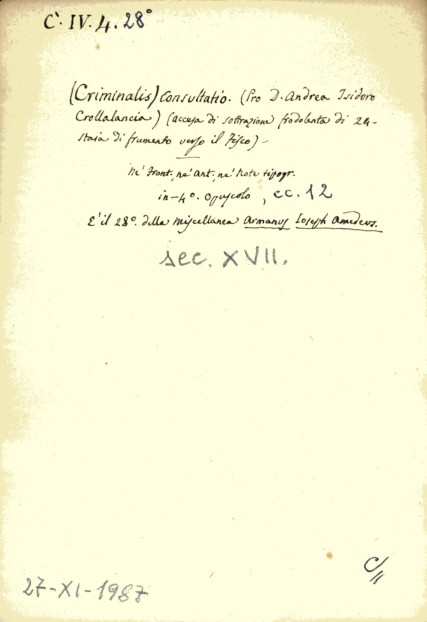 C. IV. 4. 28°
(Criminalis) Consultatio. (Pro D. Andrea Isidoro
Crollalancia) (accusa di sottrazione frodolenta di 24-
staia di frumento verso il Fisco) -
Nè Front., nè ant., nè Note tipogr.
in-4°. Opuscolo, cc. 12
È il 28°. della Miscellanea Armanus Joseph Amedeus.
sec. XVII.
27-XI-1987